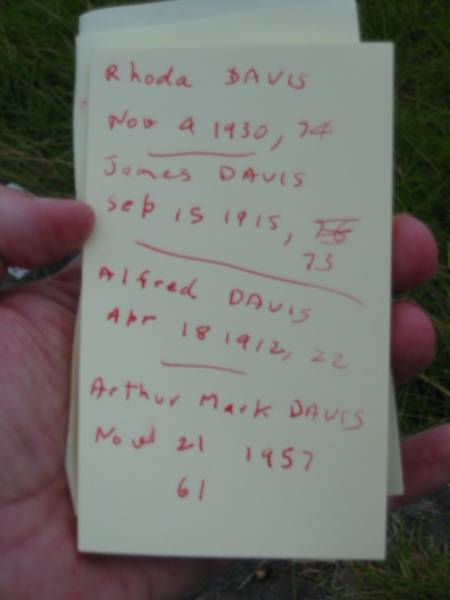 Rhoda DAVIS
Nov 9 1930, 74
James DAVIS
Sep 15 1915,
73
Alfred DAVIS
Apr 18 1912, 22
Arthur Mark DAVIS
Nov 21 1957
61